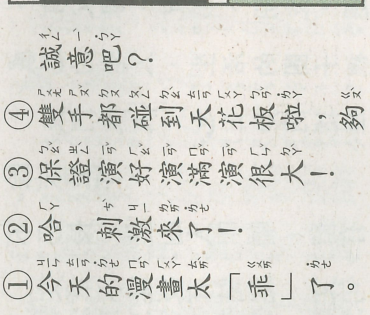 ①今天的漫畫太「乖」了。
②哈，刺激來了！
③保證演好演滿演很大！
④雙手都碰到天花板啦，夠
誠意吧？